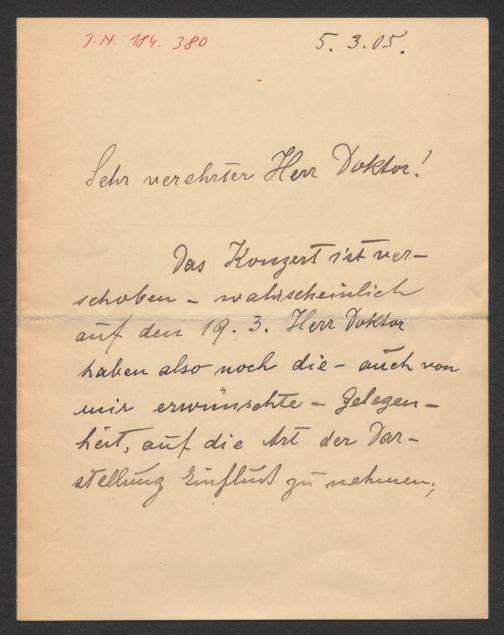 J.N. 184.380
5.3.05.
Sehr verehrter Herr Doktor!
Das Konzert ist ver-
schoben - wahrscheinlich
auf den 19. 3. Herr Doktor
haben also noch die - auch von
mir erwünschte - Gelegen-
heit, auf die Art der Dar-
stellung Einfluß zu nehmen;